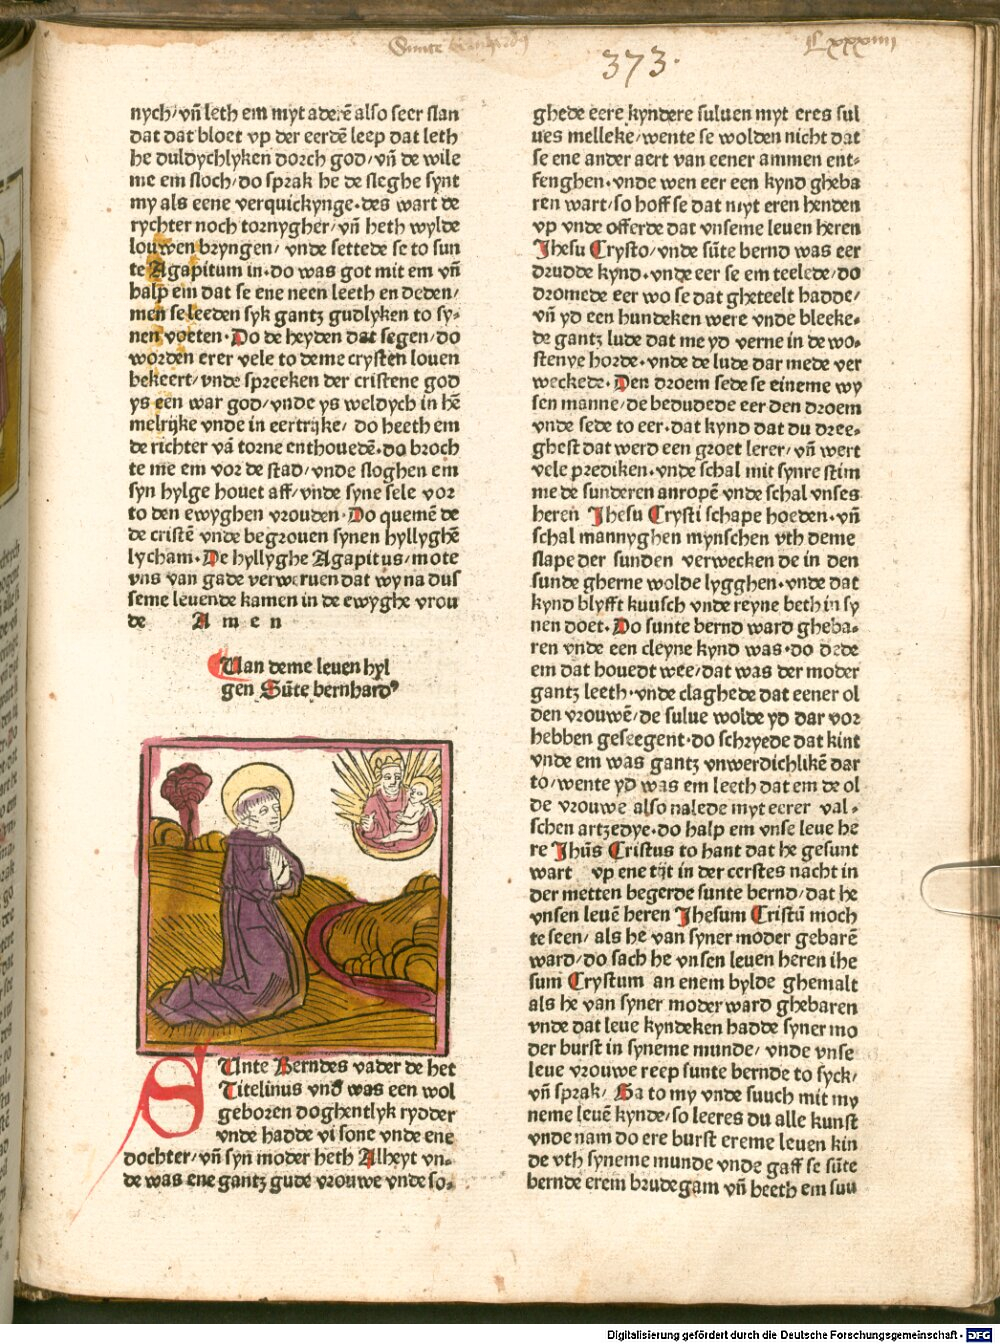 Sunte bernhardus
373.
nych/ vñ leth em myt aderē also seer slan
dat dat bloet vp der eerdē leep dat leth
he duldychlyken dorch god/ vñ de wile
me em sloch/ do sprak he de sleghe synt
my als eene verquickynge· des wart de
rychter noch tornygher/ vñ heth wylde
louwen bryngen/ vnde settede se to sun
te Agapitum in· do was got mit em vñ
halp em dat se ene neen leeth en deden/
men se leeden syk gantz gudlyken to sy-
nen voeten· Do de heyden dat segen/ do
worden erer vele to deme crysten louen
bekeert/ vnde spreeken der cristene god
ys een war god/ vnde ys weldych in hē
melrijke vnde in eertrijke/ do heeth em
de richter vā torne enthouedē· do broch
te me em vor de stad/ vnde sloghen em
syn hylge houet aff/ vnde syne sele vor
to den ewyghen vrouden· Do quemē de
de cristē vnde begrouen synen hyllyghē
lycham· De hyllyghe Agapitus/ mote
vns van gade verweruen dat wy na dus
seme leuende kamen in de ewyghe vrou
de Amen
Uan deme leuen hyl
gen Sūte bernhardꝰ
SUnte Berndes vader de het
Titelinus vnd was een wol
geboren doghentlyk rydder
vnde hadde vi sone vnde ene
dochter/ vñ syn moder heth Alheyt vn-
de was ene gantz gude vrouwe vnde so-
ghede eere kyndere suluen myt eres sul
ues melleke/ wente se wolden nicht dat
se ene ander aert van eener ammen ent-
fenghen· vnde wen eer een kynd gheba
ren wart/ so hoff se dat myt eren henden
vp vnde offerde dat vnseme leuen heren
Jhesu Crysto/ vnde sūte bernd was eer
drudde kynd· vnde eer se em teelede/ do
dromede eer wo se dat gheteelt hadde/
vñ yd een hundeken were vnde bleeke-
de gantz lude dat me yd verne in de wo-
stenye horde· vnde de lude dar mede ver
weckede· Den droem sede se eineme wy
sen manne/ de bedudede eer den droem
vnde sede to eer· dat kynd dat du dree-
ghest dat werd een groet lerer/ vñ wert
vele prediken· vnde schal mit synre stim
me de sunderen anropē vnde schal vnses
heren Jhesu Crysti schape hoeden· vñ
schal mannyghen mynschen vth deme
slape der sunden verwecken de in den
sunde gherne wolde lygghen· vnde dat
kynd blyfft kuusch vnde reyne beth in sy
nen doet· Do sunte bernd ward gheba-
ren vnde een cleyne kynd was· do dede
em dat houedt wee/ dat was der moder
gantz leeth· vnde claghede dat eener ol
den vrouwē/ de sulue wolde yd dar vor
hebben geseegent· do schryede dat kint
vnde em was gantz vnwerdichlikē dar
to/ wente yd was em leeth dat em de ol
de vrouwe also nalede myt eerer val-
schen artzedye· do halp em vnse leue he
re Jhūs Cristus to hant dat he gesunt
wart vp ene tijt in der eerstes nacht in
der metten begerde sunte bernd/ dat he
vnsen leuē heren Jhesum Cristū moch
te seen/ als he van syner moder gebarē
ward/ do sach he vnsen leuen heren ihe
sum Crystum an enem bylde ghemalt
als he van syner moder ward ghebaren
vnde dat leue kyndeken hadde syner mo
der burst in syneme munde/ vnde vnse
leue vrouwe reep sunte bernde to syck/
vñ sprak/ Ga to my vnde suuch mit my
neme leuē kynde/ so leeres du alle kunst
vnde nam do ere burst ereme leuen kin
de vth syneme munde vnde gaff se sūte
bernde erem brudegam vñ heeth em suu
Digitalisierung gefördert durch die Deutsche Forschungsgemeinschaft - DFG